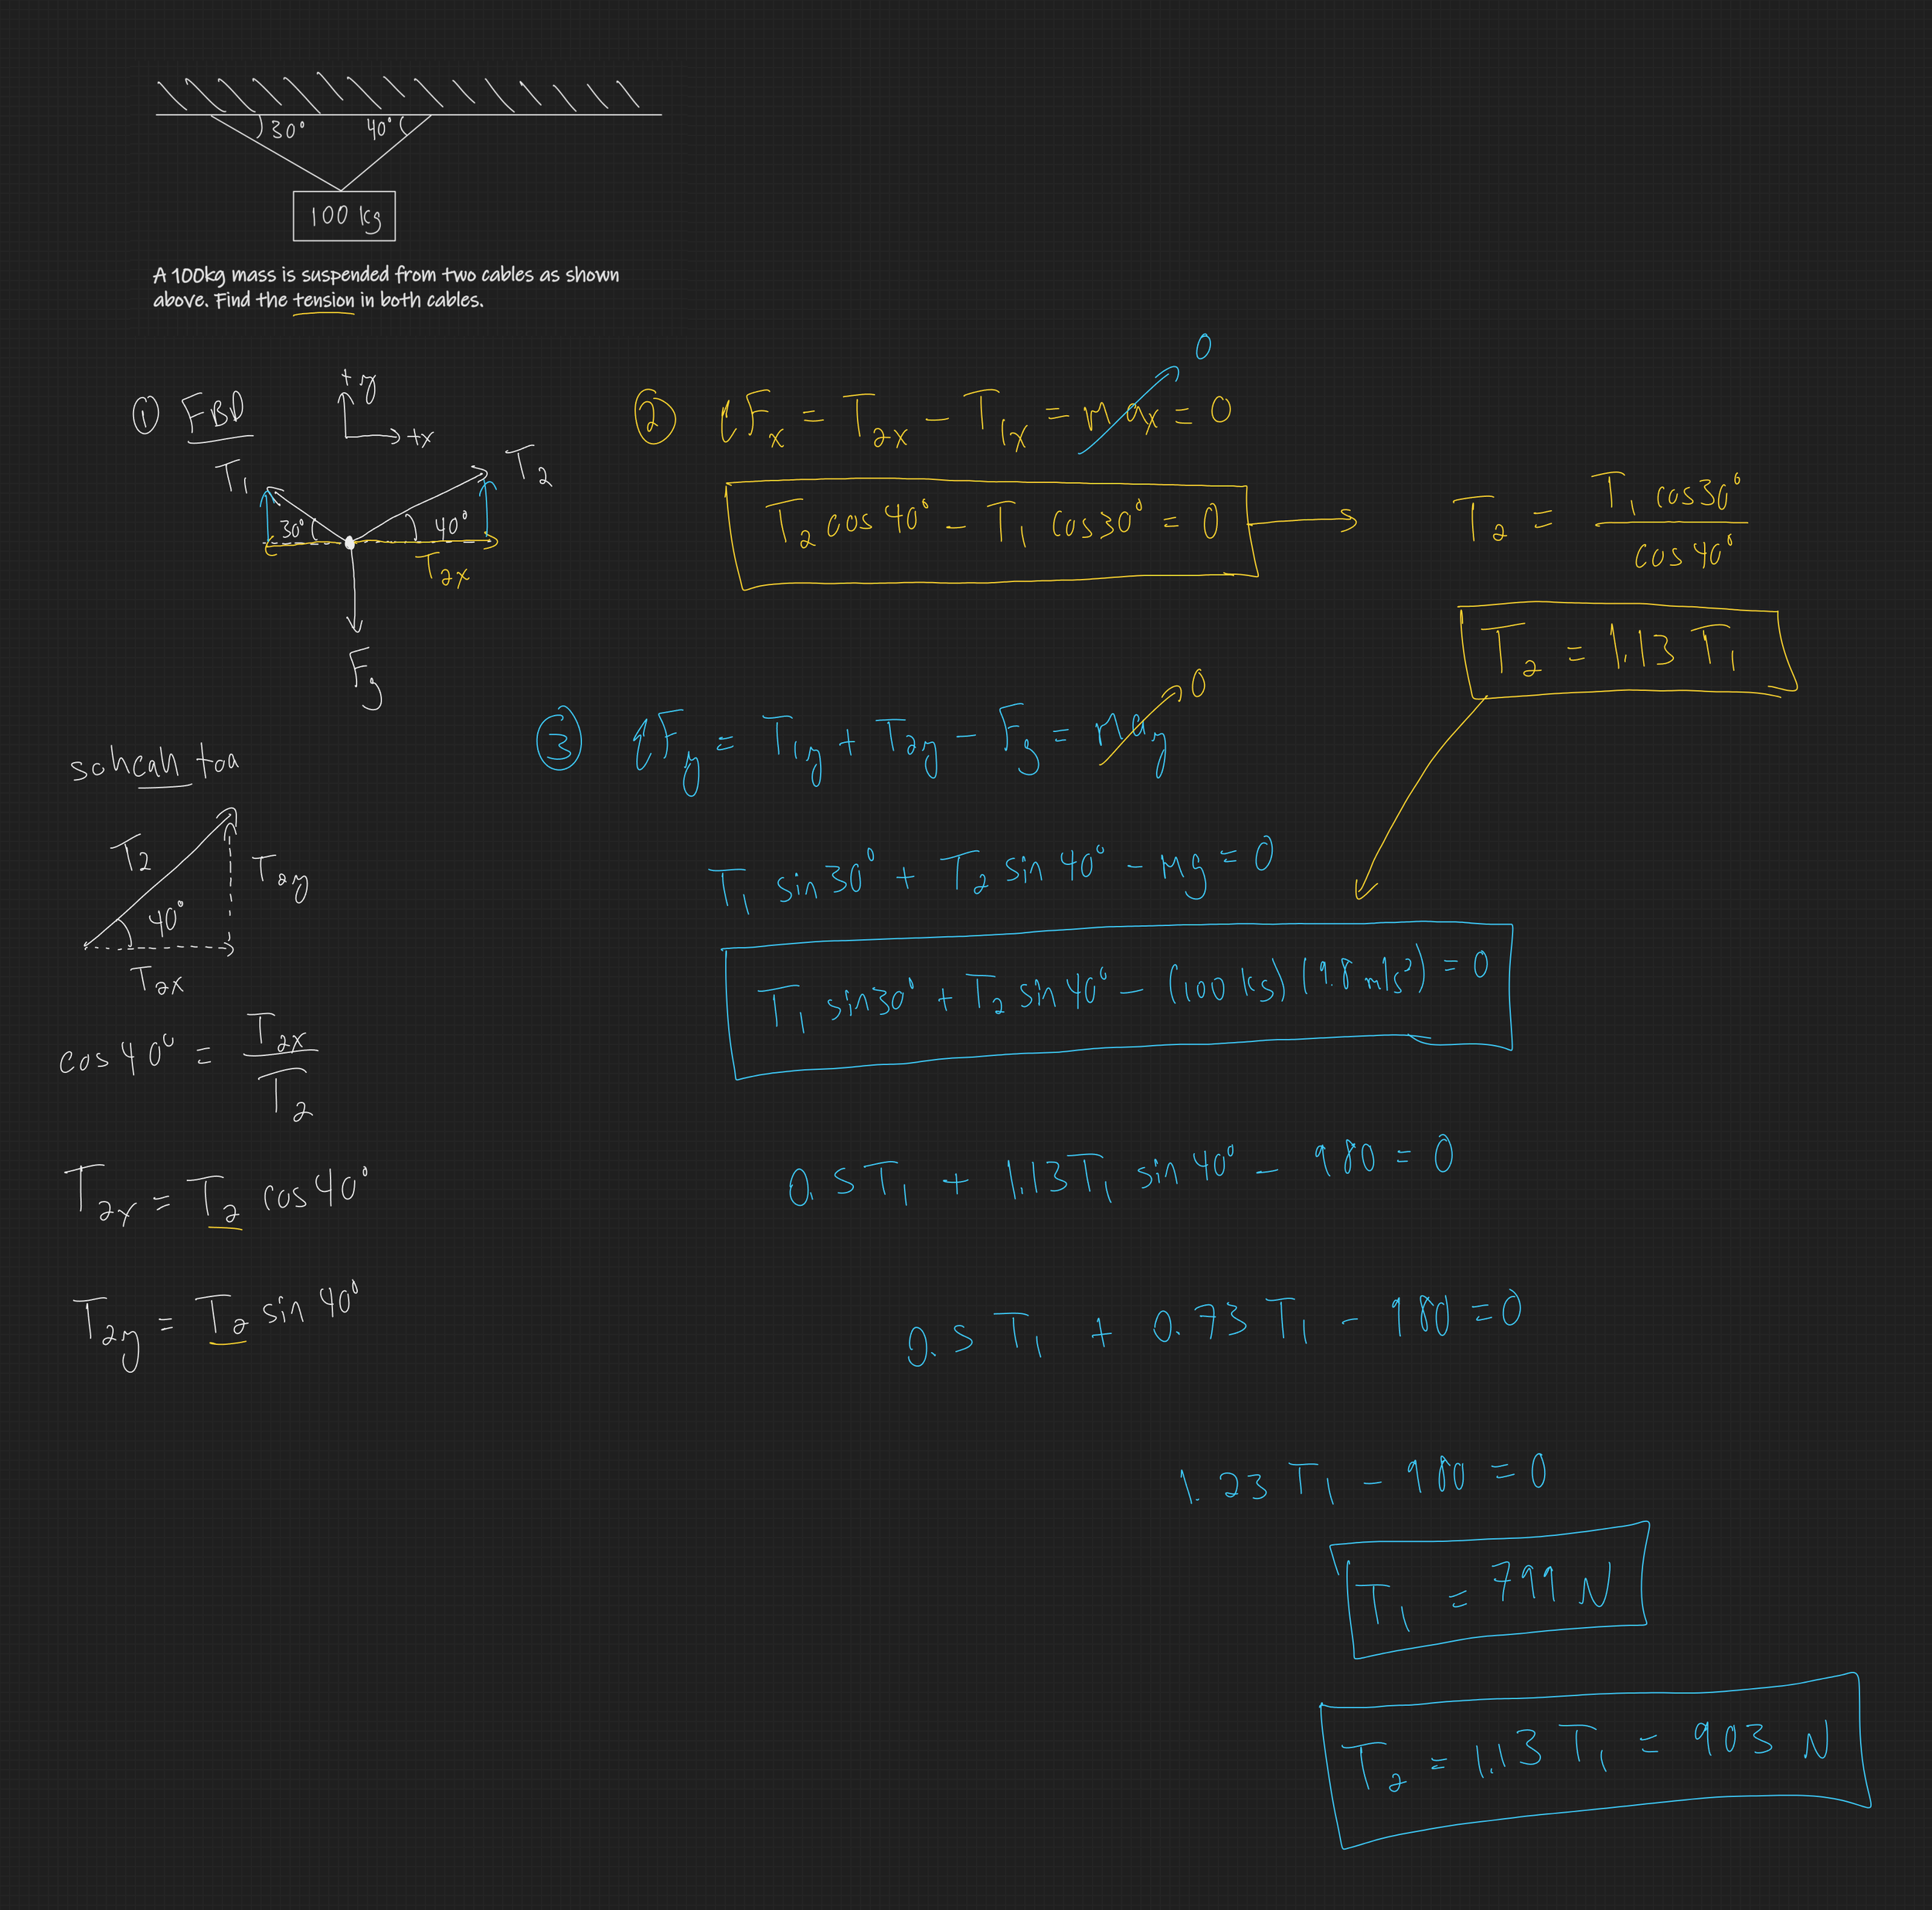 30° 40°
100 kg
A 100kg mass is suspended from two cables as shown
above. Find the tension in both cables.
① FBD
+y
+x
T₁ T₂
30° 40°
T₂ₓ
F_g
sohcah toa
T₂ T₂y
40°
T₂ₓ
cos 40° = T₂ₓ / T₂
T₂ₓ = T₂ cos 40°
T₂y = T₂ sin 40°
② ΣFₓ = T₂ₓ - T₁ₓ = maₓ = 0
0
T₂ cos 40° - T₁ cos 30° = 0
T₂ = T₁ cos 30° / cos 40°
T₂ = 1.13 T₁
③ ΣF_y = T₁y + T₂y - F_g = ma_y
0
T₁ sin 30° + T₂ sin 40° - mg = 0
T₁ sin 30° + T₂ sin 40° - (100 kg) (9.8 m/s²) = 0
0.5 T₁ + 1.13 T₁ sin 40° - 980 = 0
0.5 T₁ + 0.73 T₁ - 980 = 0
1.23 T₁ - 980 = 0
T₁ = 799 N
T₂ = 1.13 T₁ = 903 N